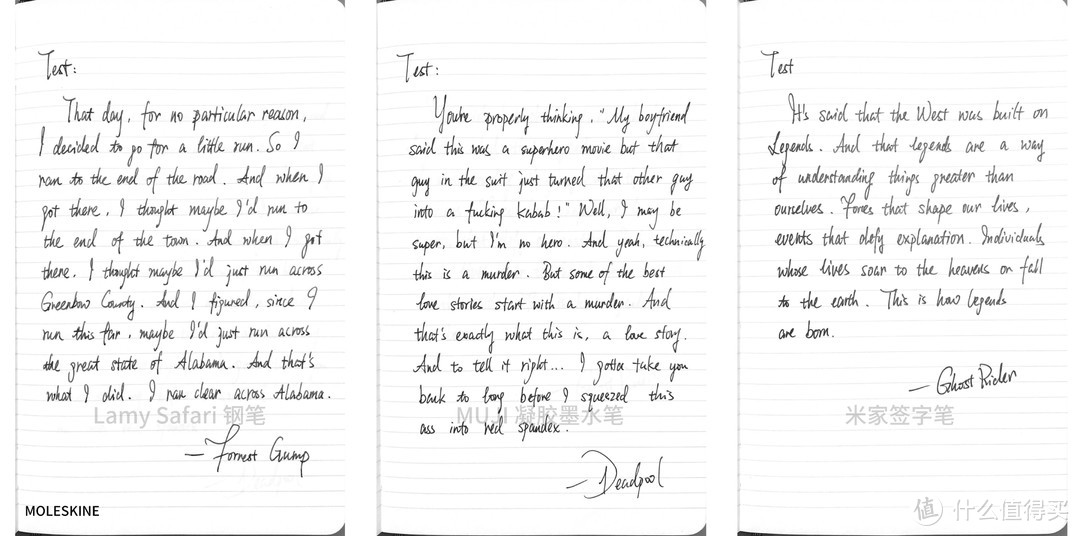 Test:
That day, for no particular reason,
I decided to go for a little run. So I
ran to the end of the road. And when I
got there, I thought maybe I'd run to
the end of the town. And when I got
there, I thought maybe I'd just run across
Greenbow County. And I figured, since I
run this far, maybe I'd just run across
the great state of Alabama. And that's
what I did. I ran clear across Alabama.
Lamy Safari 钢笔
— Forrest Gump
MOLESKINE
Test:
You're properly thinking, "My boyfriend
said this was a superhero movie but that
guy in the suit just turned that other guy
into a fucking kabab!" Well, I may be
super, but I'm no hero. And yeah, technically
this is a murder. But some of the best
love stories start with a murder. And
that's exactly what this is, a love story.
And to tell it right... I gotta take you
back to long before I squeezed this
MUJI 凝胶墨水笔
ass into red spandex.
— Deadpool
Test
It's said that the West was built on
Legends. And that legends are a way
of understanding things greater than
ourselves. Forces that shape our lives,
events that defy explanation. Individuals
whose lives soar to the heavens or fall
to the earth. This is how legends
are born.
— Ghost Rider
米家签字笔
值 什么值得买